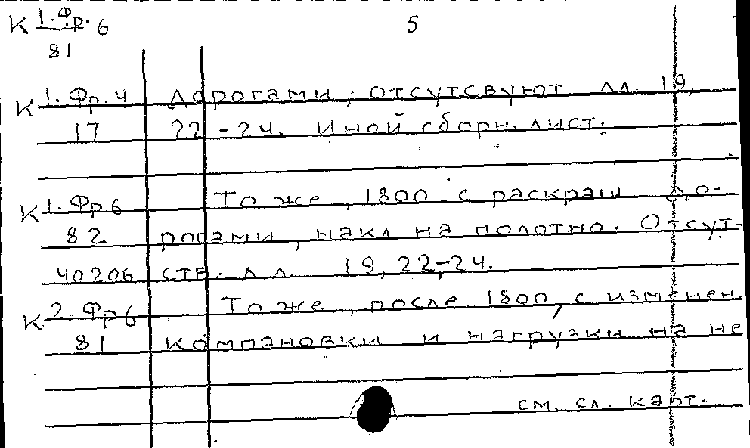 К 1.Фр.6 5
81
К 1.Фр.4 дорогами; отсутсвуют лл. 19,
17 22-24. Иной сборн. лист.
К 1.Фр6 То же, 1800 с раскраш доро-
82 рогами, накл на полотно. Отсут-
40206 ств. лл. 19, 22,-24.
К 2.Фр6 То же, после 1800, с изменен.
81 компановки и нагрузки на не
см. сл. карт.